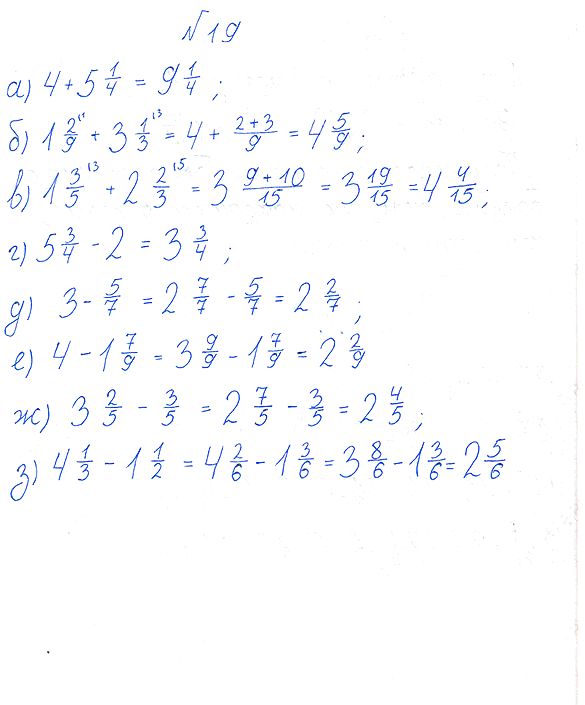 №19
а) 4 + 5 1/4 = 9 1/4 ;
б) 1 2/9 ⁽¹ + 3 1/3 ⁽³ = 4 + (2+3)/9 = 4 5/9 ;
в) 1 3/5 ⁽³ + 2 2/3 ⁽⁵ = 3 (9+10)/15 = 3 19/15 = 4 4/15 ;
г) 5 3/4 - 2 = 3 3/4 ;
д) 3 - 5/7 = 2 7/7 - 5/7 = 2 2/7 ;
е) 4 - 1 7/9 = 3 9/9 - 1 7/9 = 2 2/9
ж) 3 2/5 - 3/5 = 2 7/5 - 3/5 = 2 4/5 ;
з) 4 1/3 - 1 1/2 = 4 2/6 - 1 3/6 = 3 8/6 - 1 3/6 = 2 5/6